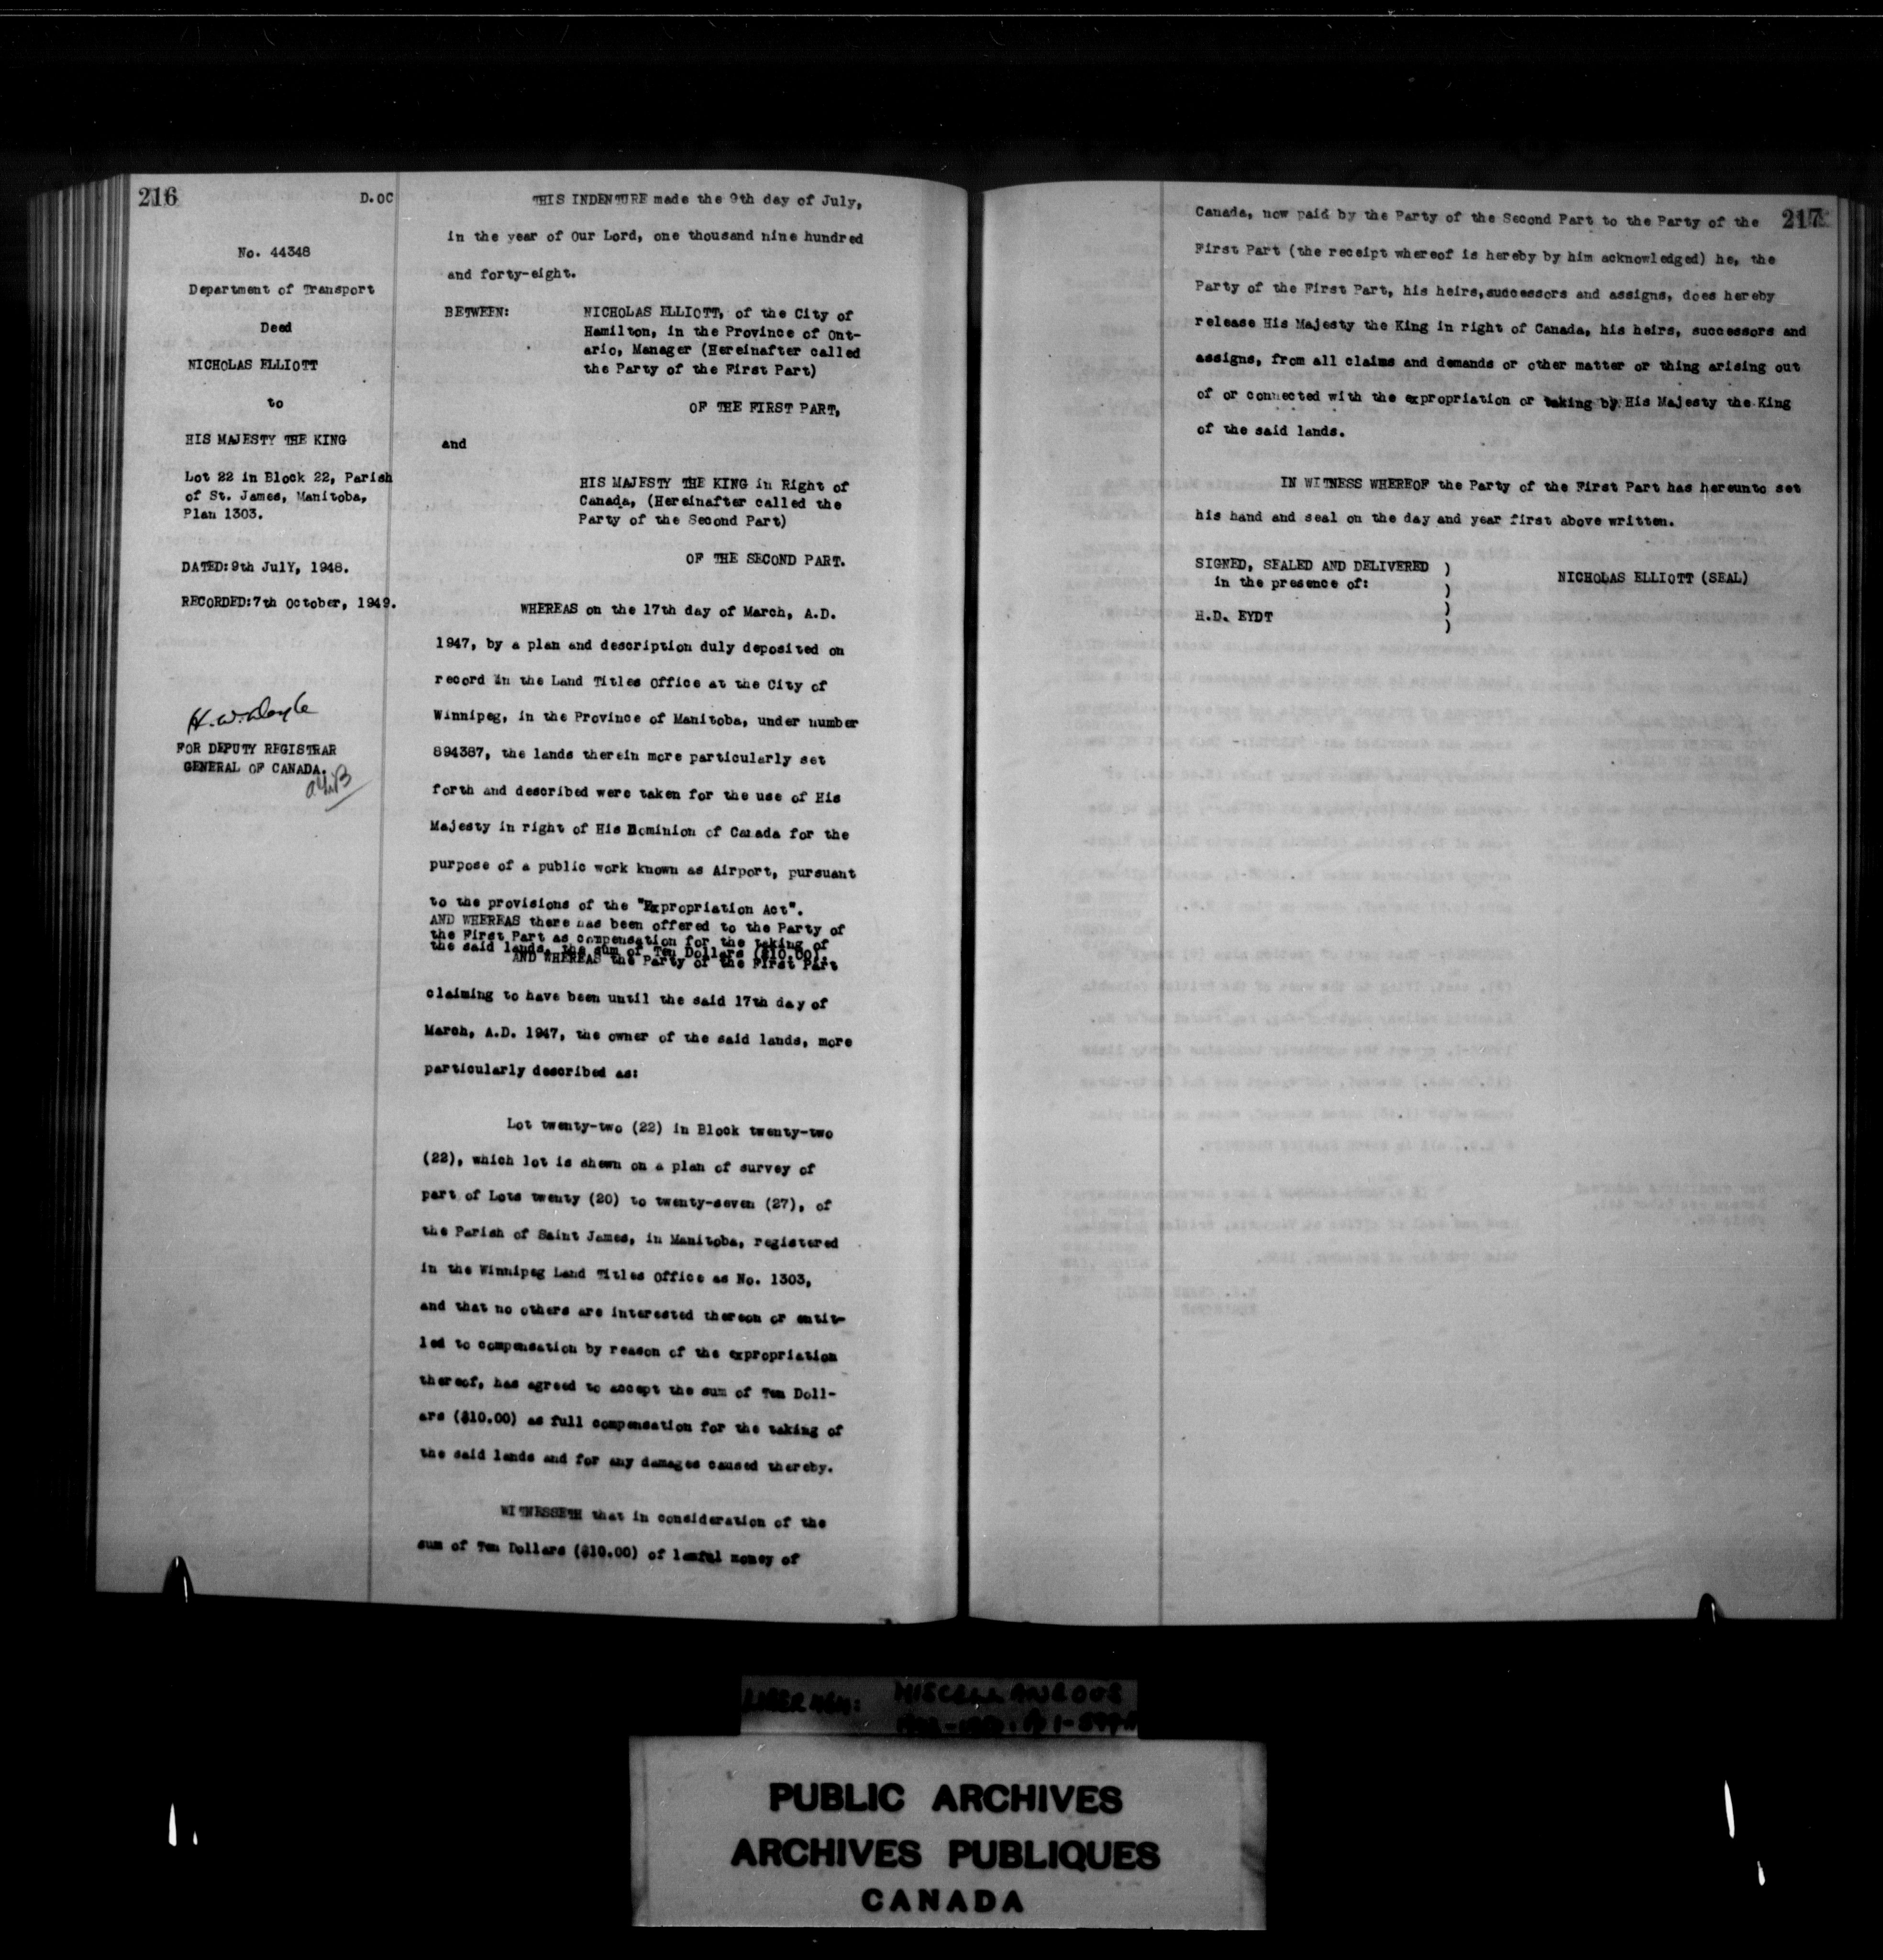 216
D.OC
No. 44348
Department of Transport
Deed
NICHOLAS ELLIOTT
to
HIS MAJESTY THE KING
Lot 22 in Block 22, Parish
of St. James, Manitoba,
Plan 1303.
DATED:9th JulY, 1948.
RECORDED:7th October, 1949.
H.W. Doyle
FOR DEPUTY REGISTRAR
GENERAL OF CANADA.
THIS INDENTURE made the 9th day of July,
in the year of Our Lord, one thousand nine hundred
and forty-eight.
BETWEEN: NICHOLAS ELLIOTT, of the City of
Hamilton, in the Province of Ont-
ario, Manager (Hereinafter called
the Party of the First Part)
OF THE FIRST PART,
and
HIS MAJESTY THE KING in Right of
Canada, (Hereinafter called the
Party of the Second Part)
OF THE SECOND PART.
WHEREAS on the 17th day of March, A.D.
1947, by a plan and description duly deposited on
record in the Land Titles Office at the City of
Winnipeg, in the Province of Manitoba, under number
894387, the lands therein more particularly set
forth and described were taken for the use of His
Majesty in right of His Dominion of Canada for the
purpose of a public work known as Airport, pursuant
to the provisions of the "Expropriation Act".
AND WHEREAS there has been offered to the Party of
the First Part as compensation for the taking of
the said lands, the sum of Ten Dollars ($10.00).
AND WHEREAS the Party of the First Part
claiming to have been until the said 17th day of
March, A.D. 1947, the owner of the said lands, more
particularly described as:
Lot twenty-two (22) in Block twenty-two
(22), which lot is shewn on a plan of survey of
part of Lots twenty (20) to twenty-seven (27), of
the Parish of Saint James, in Manitoba, registered
in the Winnipeg Land Titles Office as No. 1303,
and that no others are interested thereon or entit-
led to compensation by reason of the expropriation
thereof, has agreed to accept the sum of Ten Doll-
ars ($10.00) as full compensation for the taking of
the said lands and for any damages caused thereby.
WITNESSETH that in consideration of the
sum of Ten Dollars ($10.00) of lawful money of
217
Canada, now paid by the Party of the Second Part to the Party of the
First Part (the receipt whereof is hereby by him acknowledged) he, the
Party of the First Part, his heirs,successors and assigns, does hereby
release His Majesty the King in right of Canada, his heirs, successors and
assigns, from all claims and demands or other matter or thing arising out
of or connected with the expropriation or taking by His Majesty the King
of the said lands.
IN WITNESS WHEREOF the Party of the First Part has hereunto set
his hand and seal on the day and year first above written.
SIGNED, SEALED AND DELIVERED )
in the presence of: )
H.D. EYDT )
)
NICHOLAS ELLIOTT (SEAL)
MISCELLANEOUS
PUBLIC ARCHIVES
ARCHIVES PUBLIQUES
CANADA